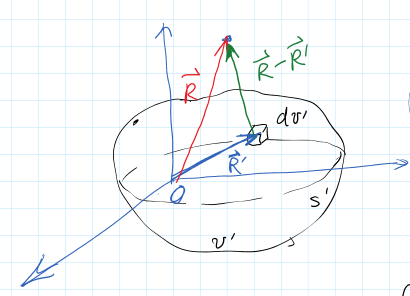 R⃗
R⃗-R⃗'
dv'
R⃗'
O
s'
v'